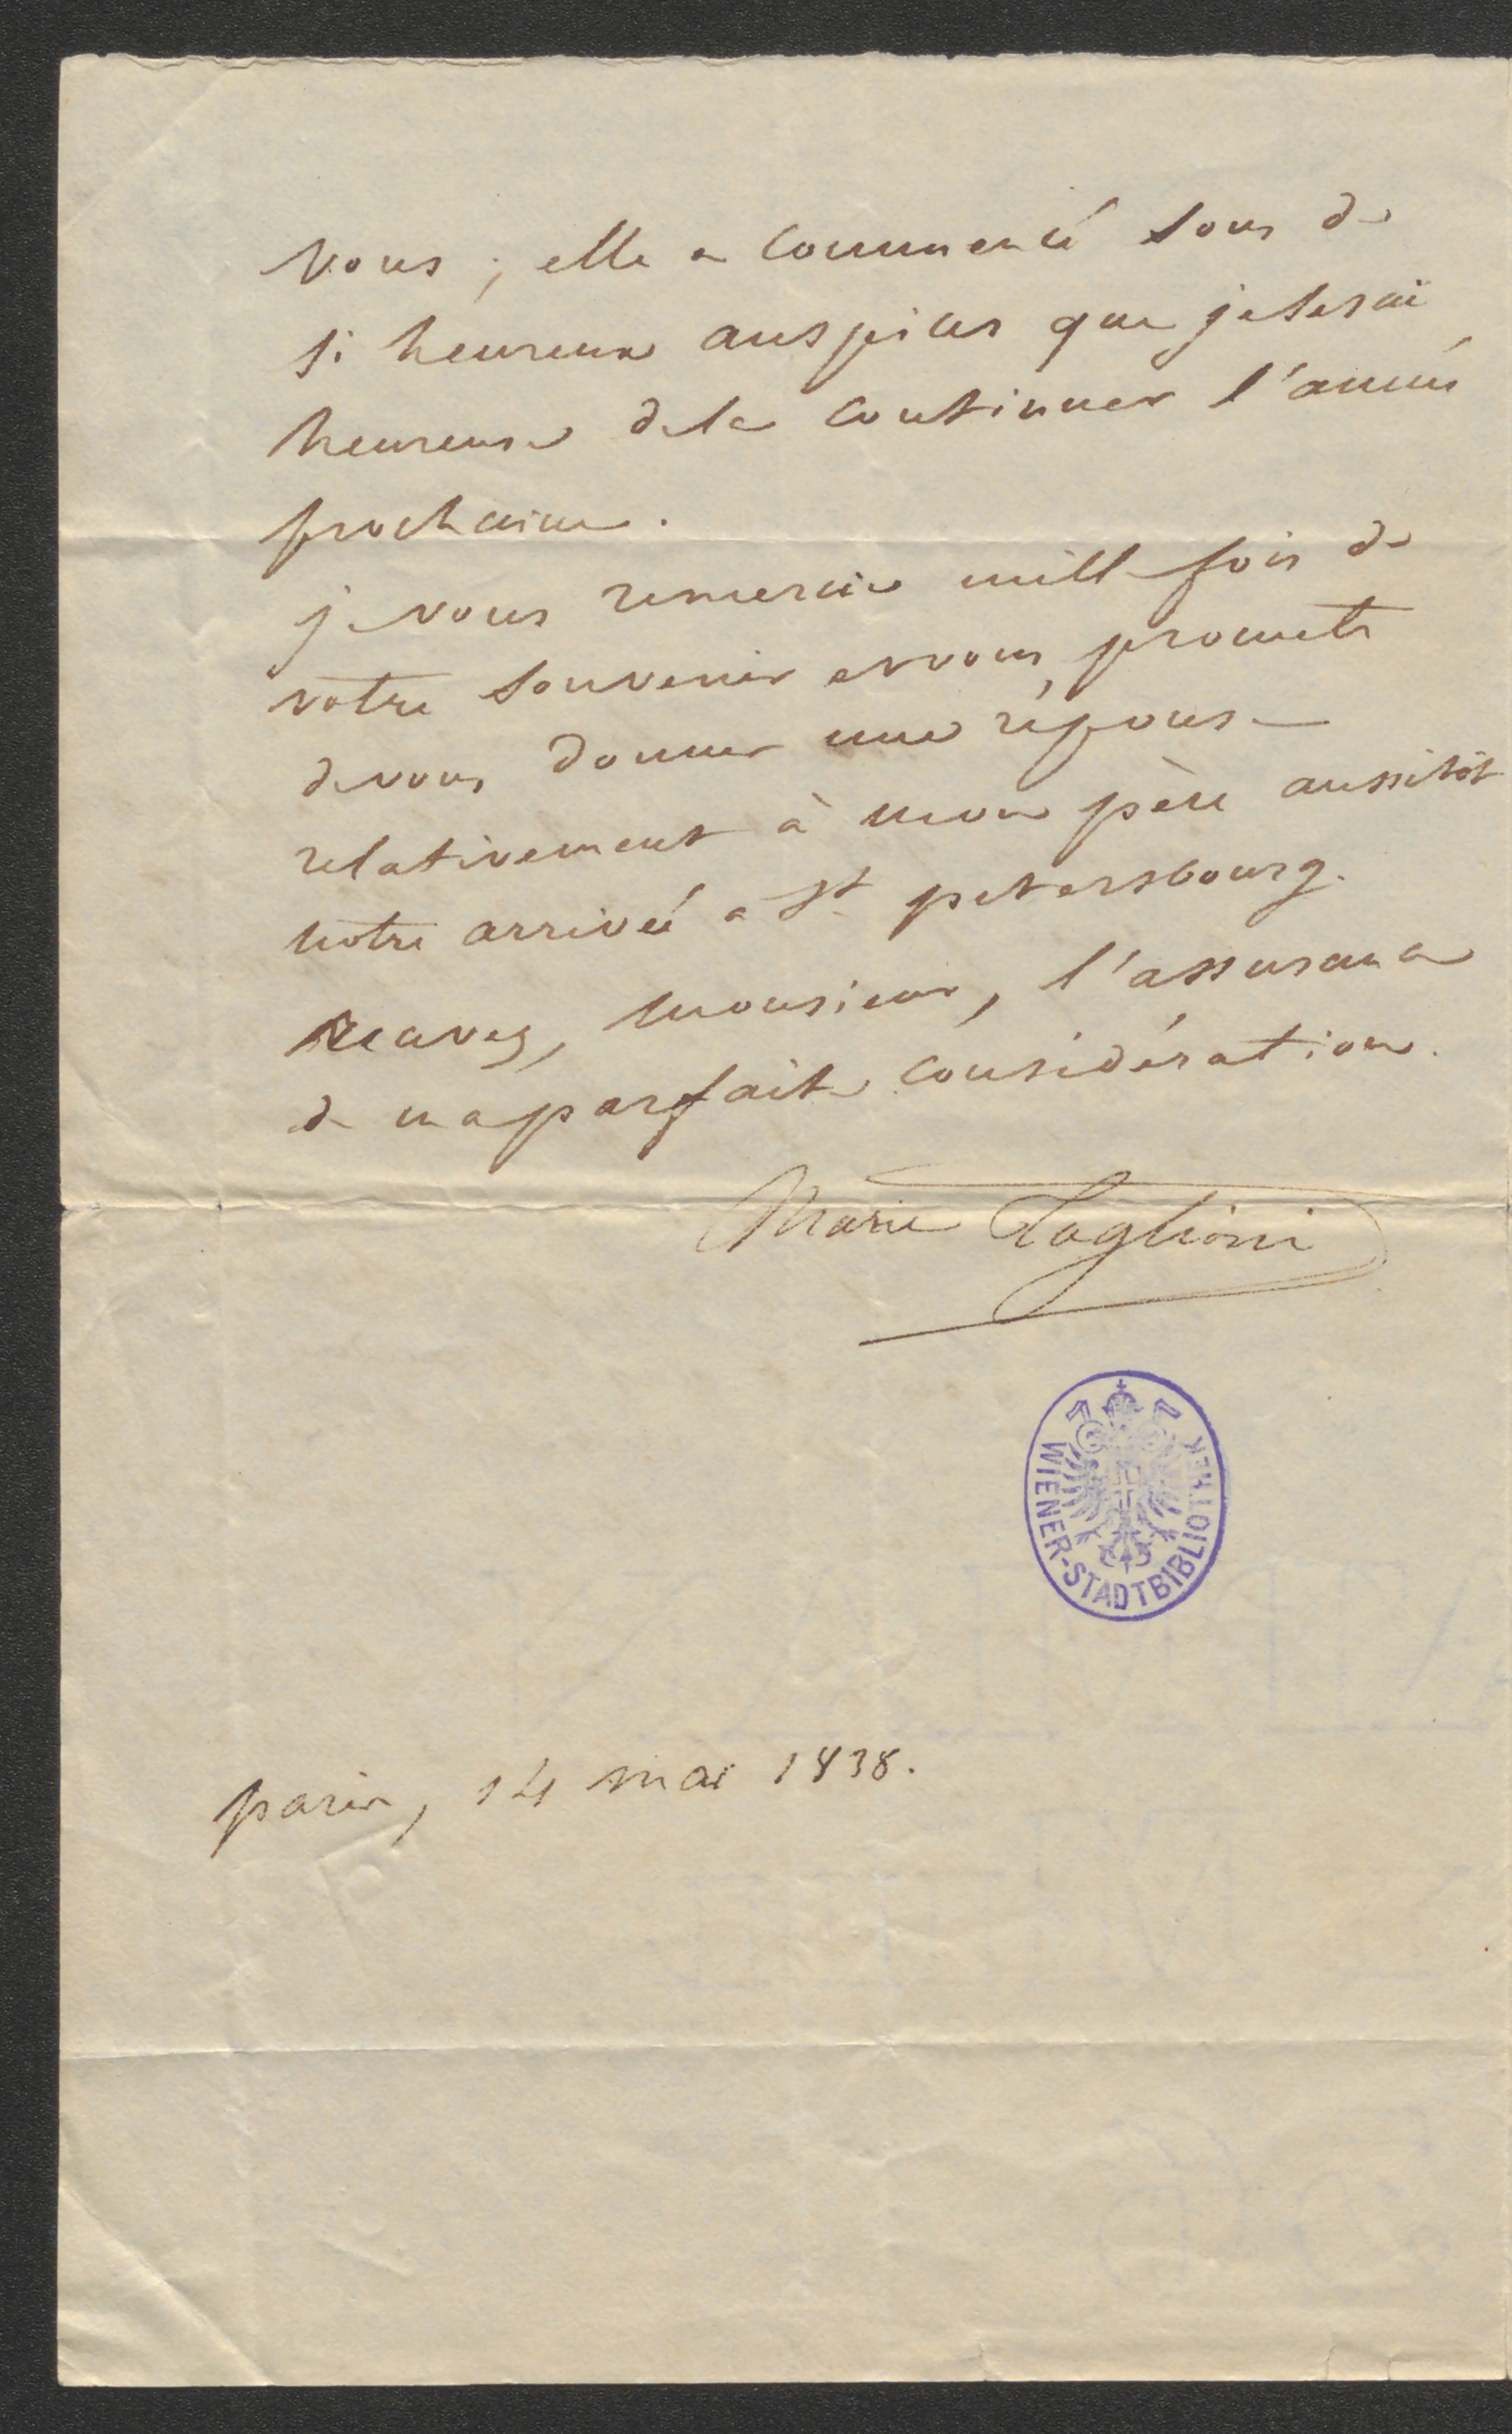 vous ; elle a commencé sous de
si heureux auspices que je serai
heureuse de la continuer l'année
prochaine.
je vous remercie mille fois de
votre souvenir et vous promets
de vous donner une réponse
relativement à mon père aussitôt
notre arrivée a St petersbourg.
Recevez, monsieur, l'assurance
de ma parfaite considération.
Marie Taglioni
WIENER-STADTBIBLIOTHEK
paris, 14 mai 1838.